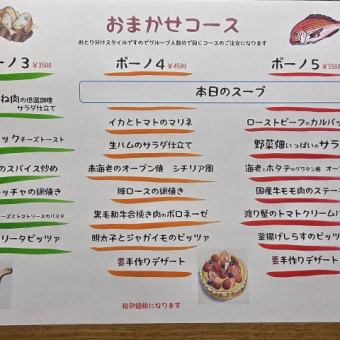 おまかせコース
おとり分けスタイルですのでグループ人数分で同じコースのご注文になります
ーノ3 ¥3500
ボーノ4 ¥4500
ボーノ5 ¥5500
本日のスープ
ね肉の低温調理
サラダ仕立て
イカとトマトのマリネ
ローストビーフのカルパッ
ックチーズトースト
生ハムのサラダ仕立て
野菜畑いっぱいのサラ
のスパイス炒め
赤海老のオーブン焼 シチリア風
海老とホタテのグラタン風 オー
ッチャの網焼き
豚ロースの網焼き
国産牛モモ肉のステー
ーズとトマトソースのパスタ
黒毛和牛合挽き肉のボロネーゼ
渡り蟹のトマトクリーム
リータピッツァ
明太子とジャガイモのピッツァ
釜揚げしらすのピッツ
手作りデザート
手作りデザート
税別価格になります